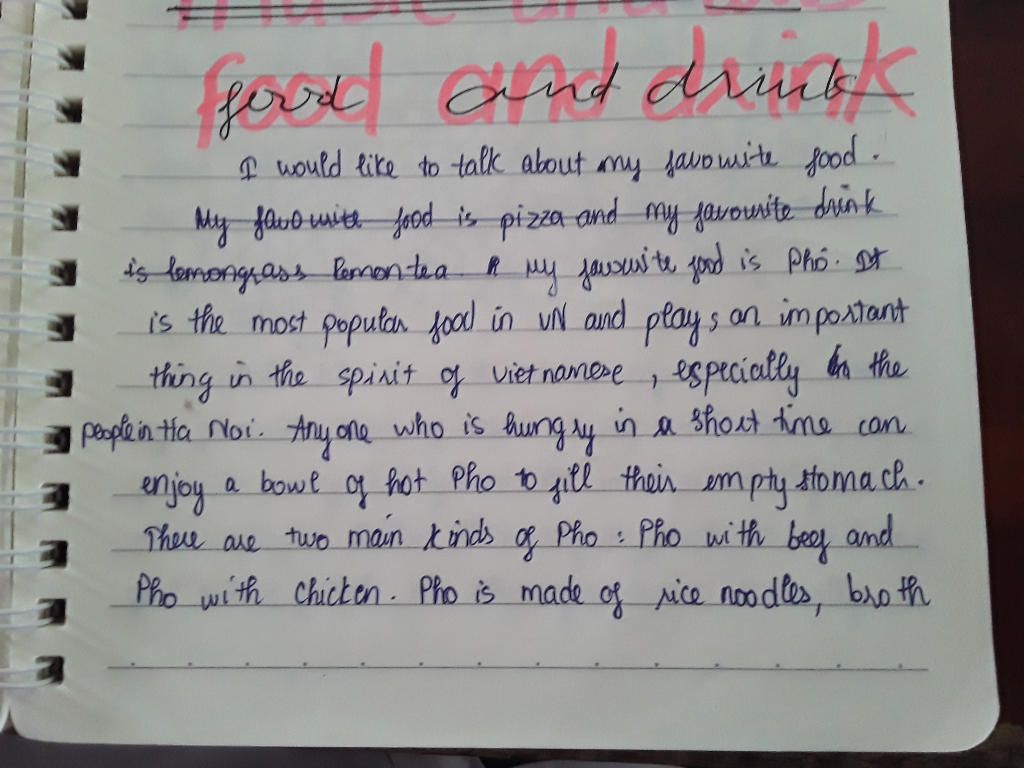 music and
food and drink
I would like to talk about my favourite food.
My favourite food is pizza and my favourite drink
is lemongrass lemon tea My favourite food is Pho. It
is the most popular food in VN and plays an important
thing in the spirit of vietnamese, especially in the
people in Ha Noi. Anyone who is hungry in a short time can
enjoy a bowl of hot Pho to fill their empty stomach.
There are two main kinds of Pho: Pho with beef and
Pho with chicken. Pho is made of rice noodles, broth